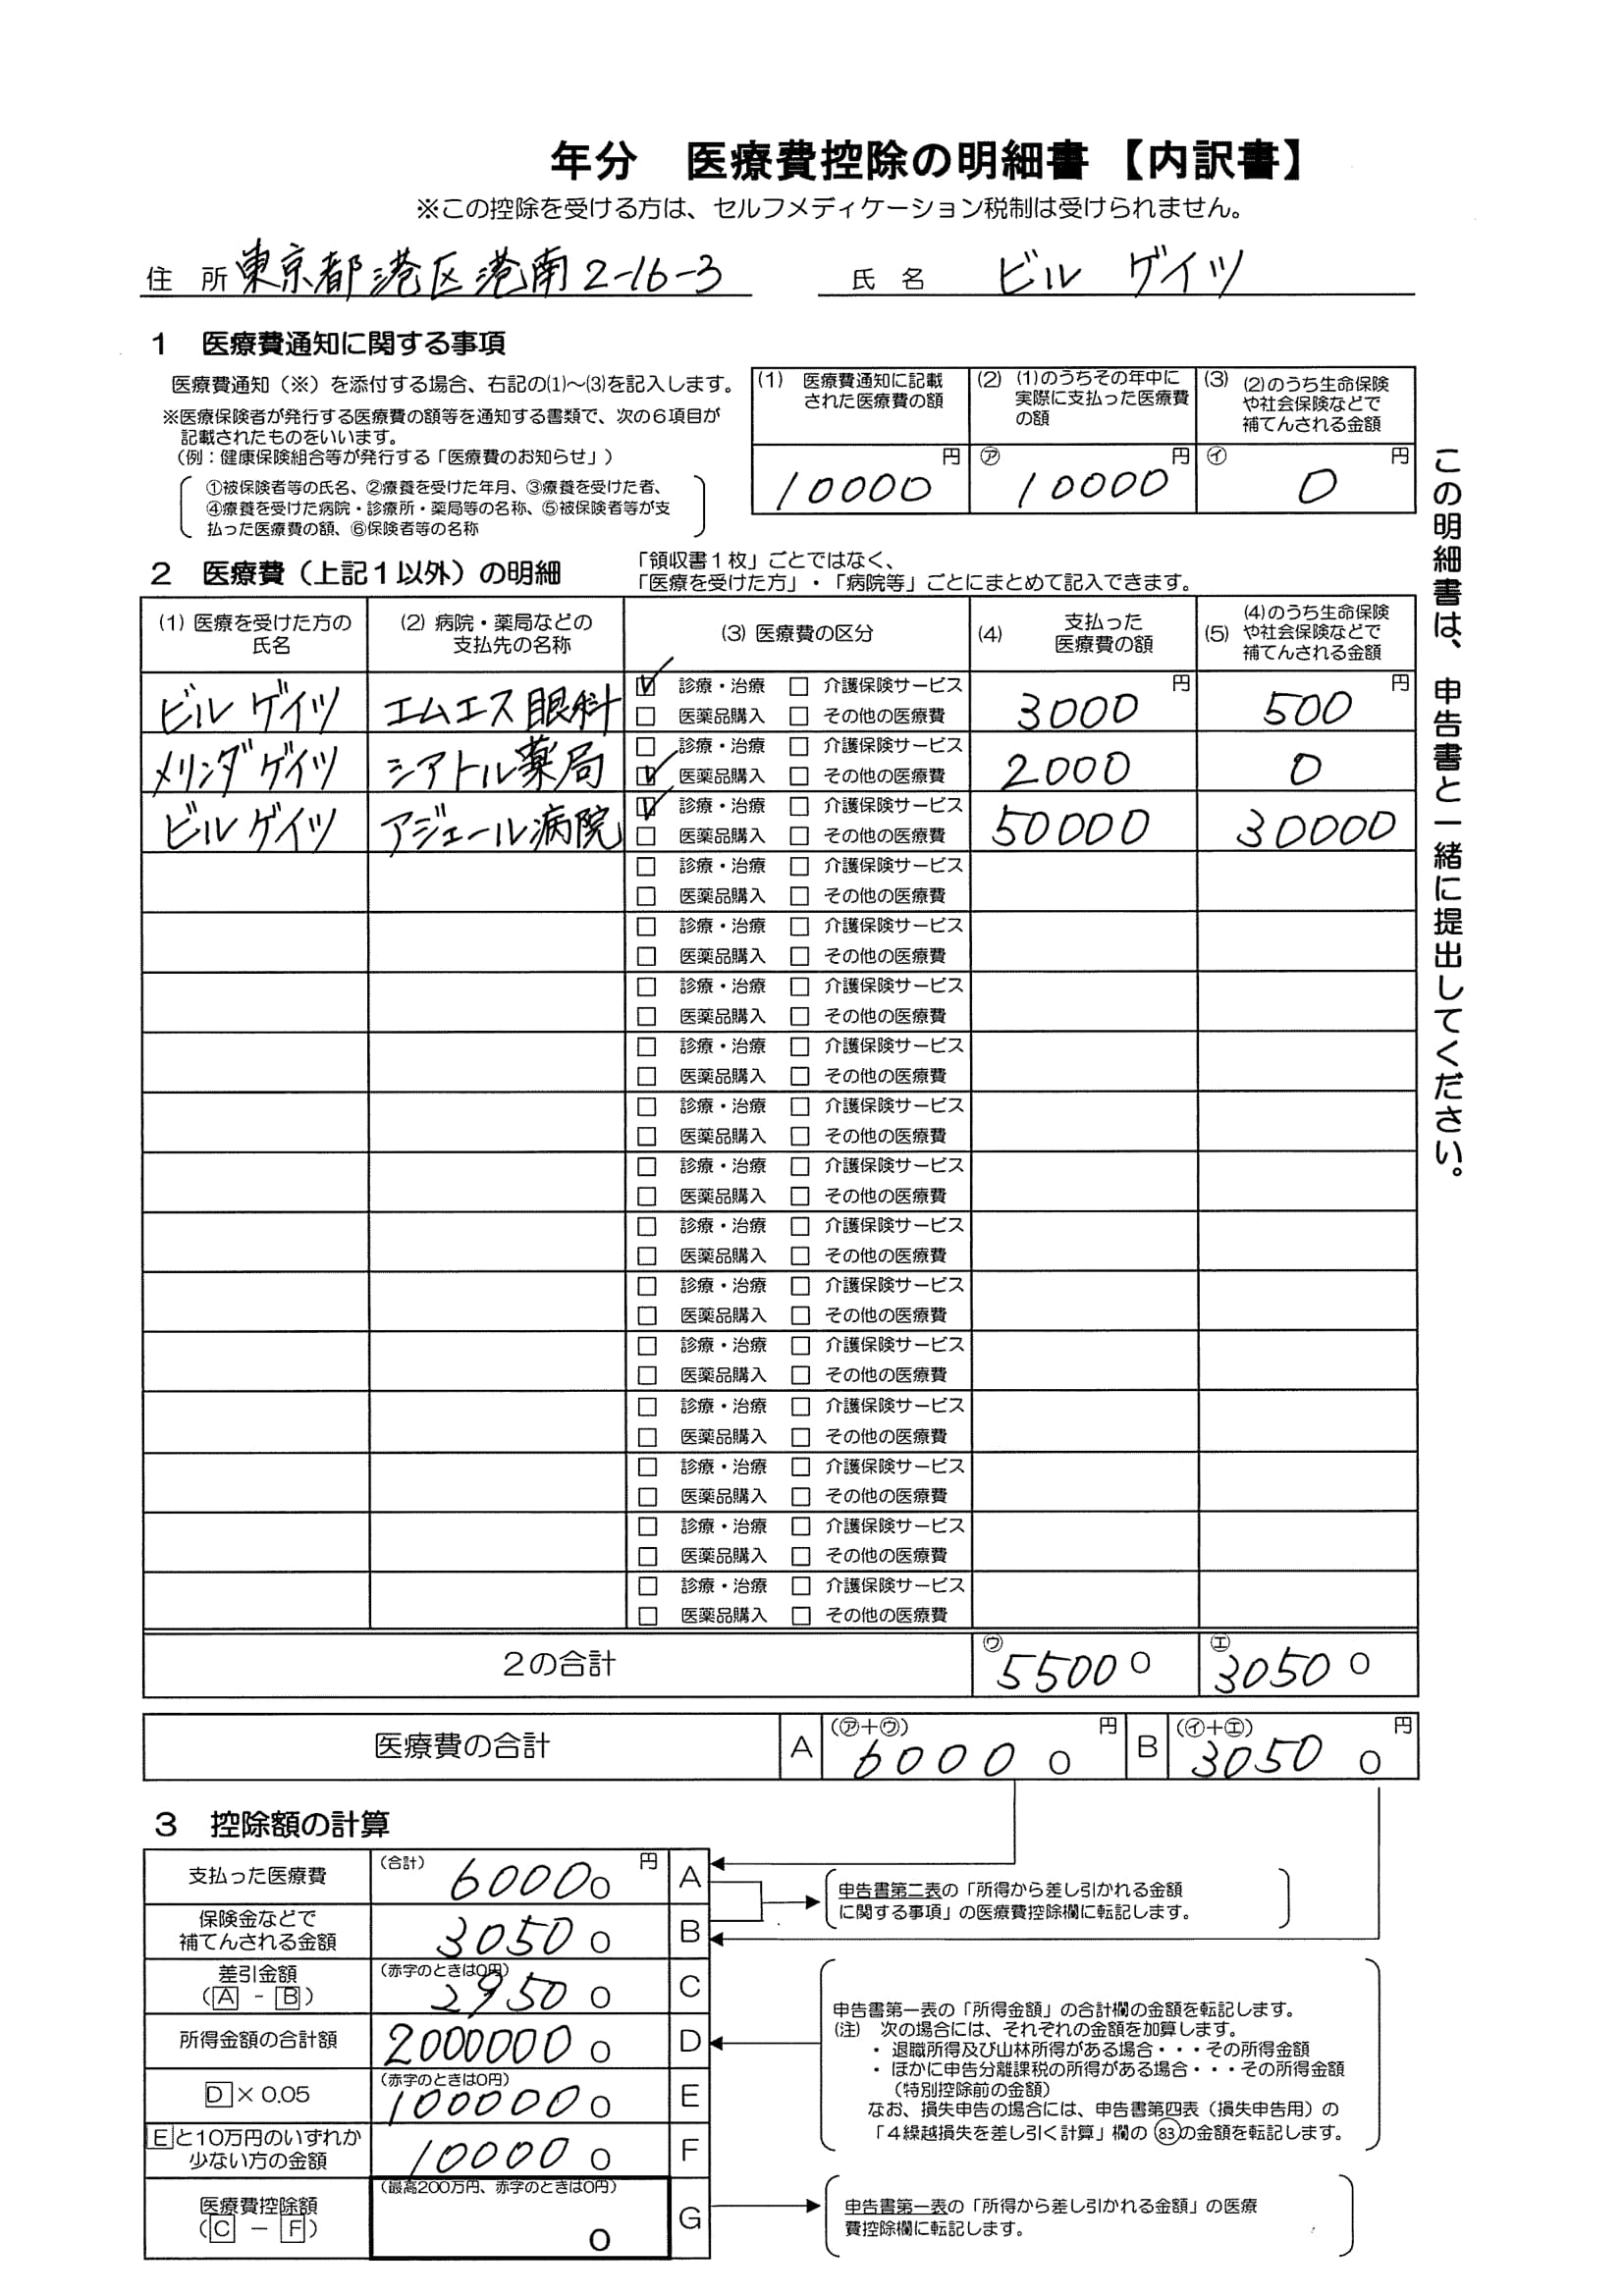 年分　医療費控除の明細書【内訳書】
※この控除を受ける方は、セルフメディケーション税制は受けられません。
住　所 東京都港区港南2-16-3　氏　名 ビル ゲイツ
1　医療費通知に関する事項
医療費通知（※）を添付する場合、右記の(1)～(3)を記入します。
※医療保険者が発行する医療費の額等を通知する書類で、次の６項目が
記載されたものをいいます。
（例：健康保険組合等が発行する「医療費のお知らせ」）
①被保険者等の氏名、②療養を受けた年月、③療養を受けた者、
④療養を受けた病院・診療所・薬局等の名称、⑤被保険者等が支
払った医療費の額、⑥保険者等の名称
(1)　医療費通知に記載
された医療費の額
(2)　(1)のうちその年中に
実際に支払った医療費
の額
(3)　(2)のうち生命保険
や社会保険などで
補てんされる金額
10000 円　㋐ 10000 円　㋑ 0 円
2　医療費（上記１以外）の明細
「領収書１枚」ごとではなく、
「医療を受けた方」・「病院等」ごとにまとめて記入できます。
(1) 医療を受けた方の
氏名
(2) 病院・薬局などの
支払先の名称
(3) 医療費の区分
(4)　支払った
医療費の額
(5)　(4)のうち生命保険
や社会保険などで
補てんされる金額
ビル ゲイツ　エムエス眼科　☑ 診療・治療　□ 介護保険サービス　3000 円　500 円
□ 医薬品購入　□ その他の医療費
メリンダ ゲイツ　シアトル薬局　□ 診療・治療　□ 介護保険サービス　2000　0
☑ 医薬品購入　□ その他の医療費
ビル ゲイツ　アジェール病院　☑ 診療・治療　□ 介護保険サービス　50000　30000
□ 医薬品購入　□ その他の医療費
□ 診療・治療　□ 介護保険サービス
□ 医薬品購入　□ その他の医療費
□ 診療・治療　□ 介護保険サービス
□ 医薬品購入　□ その他の医療費
□ 診療・治療　□ 介護保険サービス
□ 医薬品購入　□ その他の医療費
□ 診療・治療　□ 介護保険サービス
□ 医薬品購入　□ その他の医療費
□ 診療・治療　□ 介護保険サービス
□ 医薬品購入　□ その他の医療費
□ 診療・治療　□ 介護保険サービス
□ 医薬品購入　□ その他の医療費
□ 診療・治療　□ 介護保険サービス
□ 医薬品購入　□ その他の医療費
□ 診療・治療　□ 介護保険サービス
□ 医薬品購入　□ その他の医療費
□ 診療・治療　□ 介護保険サービス
□ 医薬品購入　□ その他の医療費
□ 診療・治療　□ 介護保険サービス
□ 医薬品購入　□ その他の医療費
□ 診療・治療　□ 介護保険サービス
□ 医薬品購入　□ その他の医療費
□ 診療・治療　□ 介護保険サービス
□ 医薬品購入　□ その他の医療費
□ 診療・治療　□ 介護保険サービス
□ 医薬品購入　□ その他の医療費
２の合計　㋒ 5500 0　㋓ 3050 0
医療費の合計　A　(㋐＋㋒) 6000 0 円　B　(㋑＋㋓) 3050 0 円
3　控除額の計算
支払った医療費　（合計） 6000 0 円　A
保険金などで
補てんされる金額　3050 0　B
差引金額
（A - B）　（赤字のときは0円） 2950 0　C
所得金額の合計額　2000000 0　D
D × 0.05　（赤字のときは0円） 100000 0　E
Eと10万円のいずれか
少ない方の金額　10000 0　F
医療費控除額
（C － F）　（最高200万円、赤字のときは0円） 0　G
申告書第二表の「所得から差し引かれる金額
に関する事項」の医療費控除欄に転記します。
申告書第一表の「所得金額」の合計欄の金額を転記します。
(注)　次の場合には、それぞれの金額を加算します。
・ 退職所得及び山林所得がある場合・・・その所得金額
・ ほかに申告分離課税の所得がある場合・・・その所得金額
（特別控除前の金額）
なお、損失申告の場合には、申告書第四表（損失申告用）の
「４繰越損失を差し引く計算」欄の㊃の金額を転記します。
申告書第一表の「所得から差し引かれる金額」の医療
費控除欄に転記します。
この明細書は、申告書と一緒に提出してください。